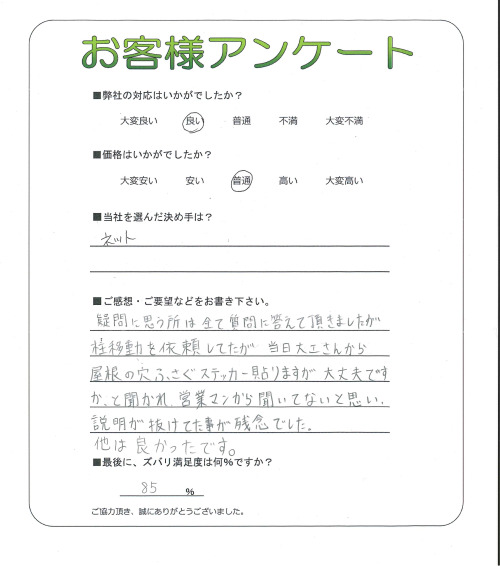 お客様アンケート
■弊社の対応はいかがでしたか？
大変良い 良い 普通 不満 大変不満
■価格はいかがでしたか？
大変安い 安い 普通 高い 大変高い
■当社を選んだ決め手は？
ネット
■ご感想・ご要望などをお書き下さい。
疑問に思う所は全て質問に答えて頂きましたが
柱移動を依頼してたが 当日大工さんから
屋根の穴ふさぐステッカー貼りますが 大丈夫です
か、と聞かれ、営業マンから聞いてないと思い、
説明が抜けてた事が残念でした。
他は良かったです。
■最後に、ズバリ満足度は何％ですか？
85 %
ご協力頂き、誠にありがとうございました。